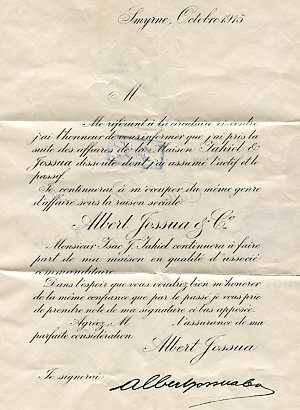 Smyrne, Octobre 1915
M
Me référant à la circulaire ci-contre
j'ai l'honneur de vous informer que j'ai pris la
suite des affaires de la Maison Fahiel &
Jossua dissoute dont j'ai assumé l'actif et le
passif.
Je continuerai à m'occuper du même genre
d'affaire sous la raison sociale
Albert Jossua & Co
Monsieur Isac J. Fahiel continuera à faire
part de ma maison en qualité d'associé
commanditaire.
Dans l'espoir que vous voudrez bien m'honorer
de la même confiance que par le passé je vous prie
de prendre note de ma signature ci bas apposée.
Agréez, M l'assurance de ma
parfaite considération
Albert Jossua
Je signerai